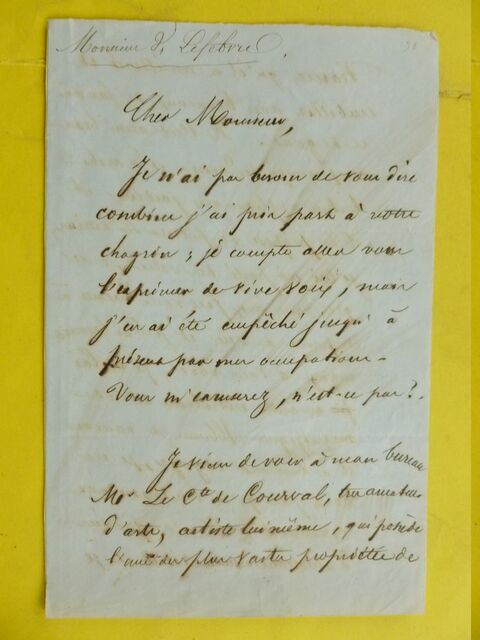 Monsieur J. Lefebvre.
Cher Monsieur,
Je n'ai pas besoin de vous dire
combien j'ai pris part à votre
chagrin ; je compte aller vous
l'exprimer de vive voix, mais
j'en ai été empêché jusqu'à
présent par mes ocupations.
Vous m'excuserez, n'est-ce pas ?
Je viens de voir à mon bureau
Mr. Le Cte de Courval, tres amateur
d'arts, artiste lui même, qui possède
l'une des plus vastes propriétés de